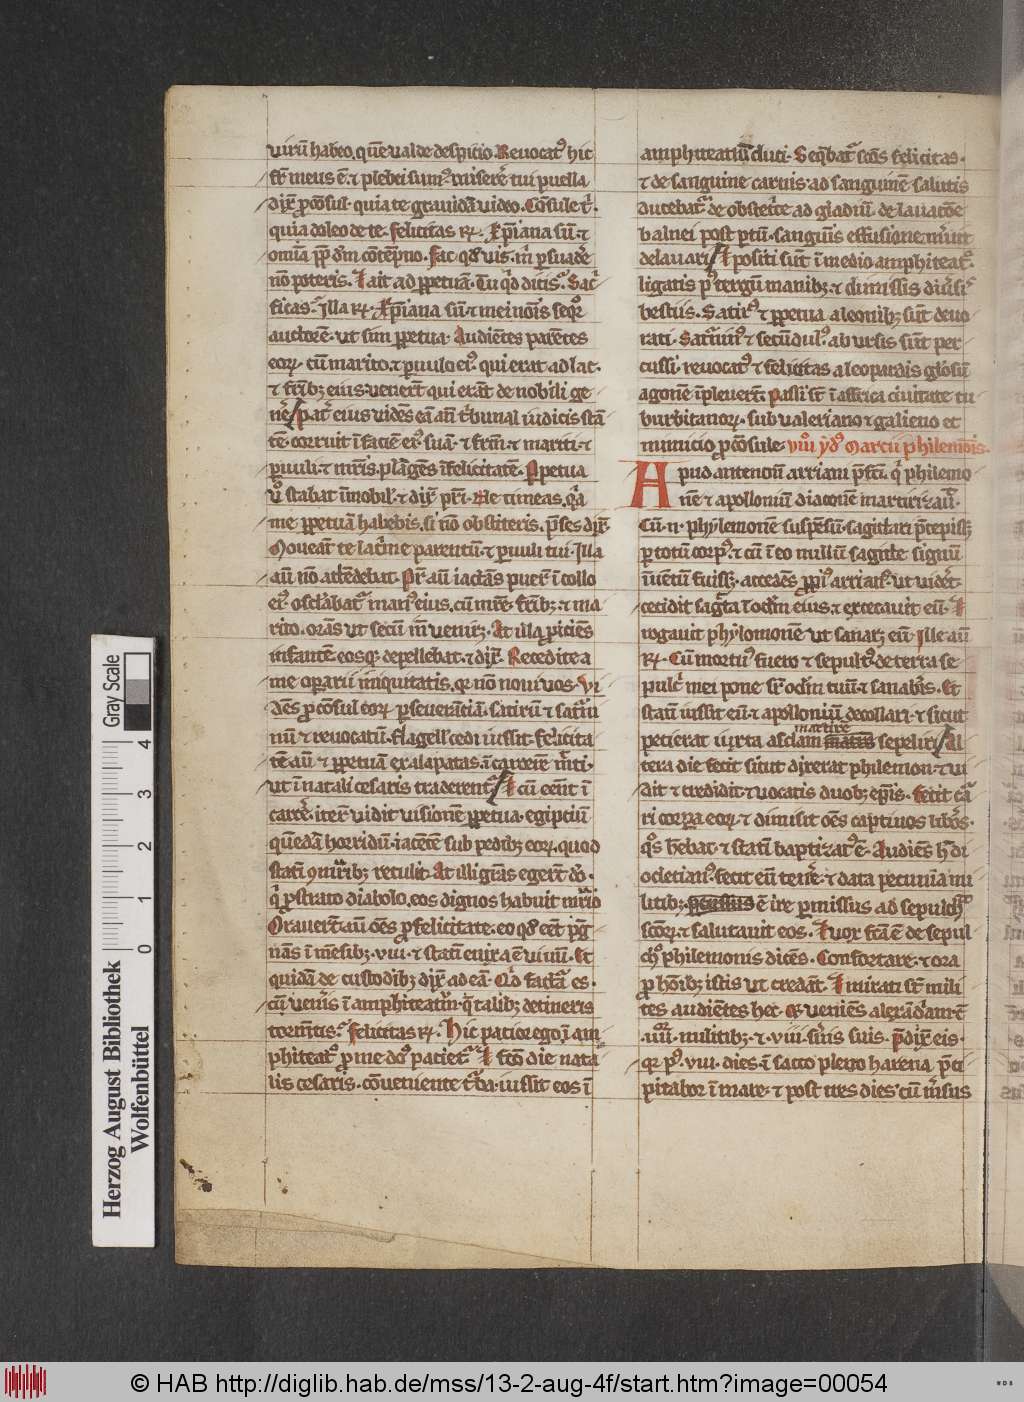 virū habeo. quē valde despicio. Revocatꝰ hic
fr̄ meus ē. ⁊ plebei sumꝰ. miserē tui puella
dix̄ ꝓcōsul. quia te gravidā video. Cōsule t̄.
quia doleo de te. felicitas Rꝫ. xp̄iana sū. ⁊
om̄ia pp̄ dm̄ cōtēpno. fac qd̄ vis. m̄ persuadē
nō poteris. I ait ad ꝑpetuā. Tu qͥd dicis. Sacͥ
ficas. illa Rꝫ. xp̄iana sū. ⁊ mei nois seqͦr
auctorē. ut sim ꝑpetua. Audiētes parētes
eoꝝ. cū marito. ⁊ ꝑvulo eiꝰ. qui erat ad lac.
⁊ fr̄ibꝫ eius venerūt qui erāt de nobili ge
nere pater eius vidēs eā an̄ tͥbunal iudicis stā
tē. corruit ī faciē eiꝰ. suā. ⁊ fr̄m. ⁊ mariti. ⁊
ꝑvuli. ⁊ mr̄is. plāgēs īfelicitatē. ꝑpetua
v̊ stabat īmobilꝰ. ⁊ dix̄ pr̄i. Ne timeas. qͥa
me ꝑpetuā habebis. si nō obstiteris.
Moveāt te lacͥme parentū. ⁊ ꝑvuli tui. Illa
aū nō attēdebat. Pr̄ aū iactās pueꝝ ī collo
eiꝰ osclabatur manꝰ eius. cū mr̄e. fr̄ibꝫ. ⁊ ma
rito. orās ut secū viverꝫ. At illa ꝓiciēs
infantē eosqꝫ depellebat. ⁊ dix̄. Recedite a
me oꝑarii iniquitatis. qꝛ nō novi vos. Vi
dēs ꝓcōsul eoꝝ ꝑseverātiā. satirū ⁊ satͥni
nū ⁊ revocatū. flagellꝰ cedi iussit. felicita
tē aū ⁊ ꝑpetuā exalapatas. ī carcerē mͥtti.
ut ī natali cesaris traderentͬ. I cū eēnt ī
carcē. iterͫ vidit visionē ꝑpetua. egipciū
quēdā horridū. iacētē sub pedibꝫ eoꝝ. quod
statī retulit. At illi grās egerūt dō.
qͥ ꝓstrato diabolo. eos dignos habuit mr̄io
Oraverūt aū oēs ꝓ felicitate. eo qd̄ eēt p̄g
nās ī mēsibꝫ. viii. ⁊ statī enixa ē vivū. Et
quidā de custodibꝫ dix̄ ad eā. Qͥd factͣ es.
cū venͥis ī amphiteatͬm. qͣ talibꝫ detineris
tormtis. felicitas Rꝫ. Hic pacior ego. ī am
phiteatͬ ꝓ me dꝰ patietͬ. I fctō die nata
lis cesaris. cōveniente tͬba. iussit eos ī
amphiteatrū duci. Seqͣbatͬ scōs felicitas.
⁊ de sanguine carnis. ad sanguinē salutis
ducebatͬ. de obstetͥce ad gladiū. de lavatōe
balnei post ptū. sangͥis effusione mͥuit
delavari I positi sūt ī medio amphiteatͬ.
ligatis pꝰ tergū manibꝫ. ⁊ dimissis divͥsis
bestiis. Satirꝰ ⁊ ꝑpetua a leonibꝫ sūt devo
rati. Satͥninꝰ ⁊ secūdulꝰ. ab ursis sūt per
cussi. revocatꝰ ⁊ felicitas a leopardis glosū
agonē īpleverūt. Passi st̄ ī affrica civitate tu
burbitanoꝝ. sub valeriano ⁊ galieno et
municio ꝓcōsule. viii ydꝰ Marcii philemōis.
Apud antenoū arriani p̄fci. qͥ philemo
nē ⁊ apollonium diaconē martirizavit.
Cū. n. phylemonē suspēsū. sagittari p̄cepisꝫ
ꝑ totū corpꝰ. ⁊ cū ī eo nullū sagitte signū
īvētū fuisꝫ. accedēs ꝓpiꝰ arrianꝰ. ut viderꝫ.
cecidit sagͭta ī oclm̄ eius. ⁊ excecavit eū. I
rogavit phylomonē ut sanarꝫ eū. Ille aū
Rꝫ. Cū mortuꝰ fuero ⁊ sepultꝰ. de terra se
pulcͬ mei pone sr̄ oclm̄ tuū. ⁊ sanabͥis. Et
statī iussit eū. ⁊ apollonium decollari. ⁊ sicut
martire
petierat iuxta asclam sepeliri Al
tera die fecit sicut dixerat philemon. ⁊ vi
dit ⁊ credidit. ⁊ vocatis duobꝫ ep̄is. fecit cū
ri corꝑa eoꝝ. ⁊ dimisit oēs captivos libͦs.
qͦs hebat. ⁊ statī baptizatꝰ ē. Audiēs h̄ di
ocletianꝰ. fecit eū tenē. ⁊ data pecunia mi
litibꝫ. ē ire permissus ad sepulchͬ
scōꝝ. ⁊ salutavit eos. I vox fcā ē de sepul
chͦ philemonis dicēs. Confortare. ⁊ ora
ꝓ hoībꝫ istis ut credāt. I mirati st̄ mili
tes audiētes hec. Et veniēs alexādͥā vr̄ē
.iiiior. militibꝫ. ⁊ .viii. sͥvis suis. p̄dix̄ eis.
qꝛ pꝰ. viii. dies. ī sacco pleno harena p̄ci
pitabor ī mare. ⁊ post tres dies cū mͥsus
Herzog August Bibliothek
Wolfenbüttel
0 1 2 3 4
Gray Scale
© HAB http://diglib.hab.de/mss/13-2-aug-4f/start.htm?image=00054
WDB